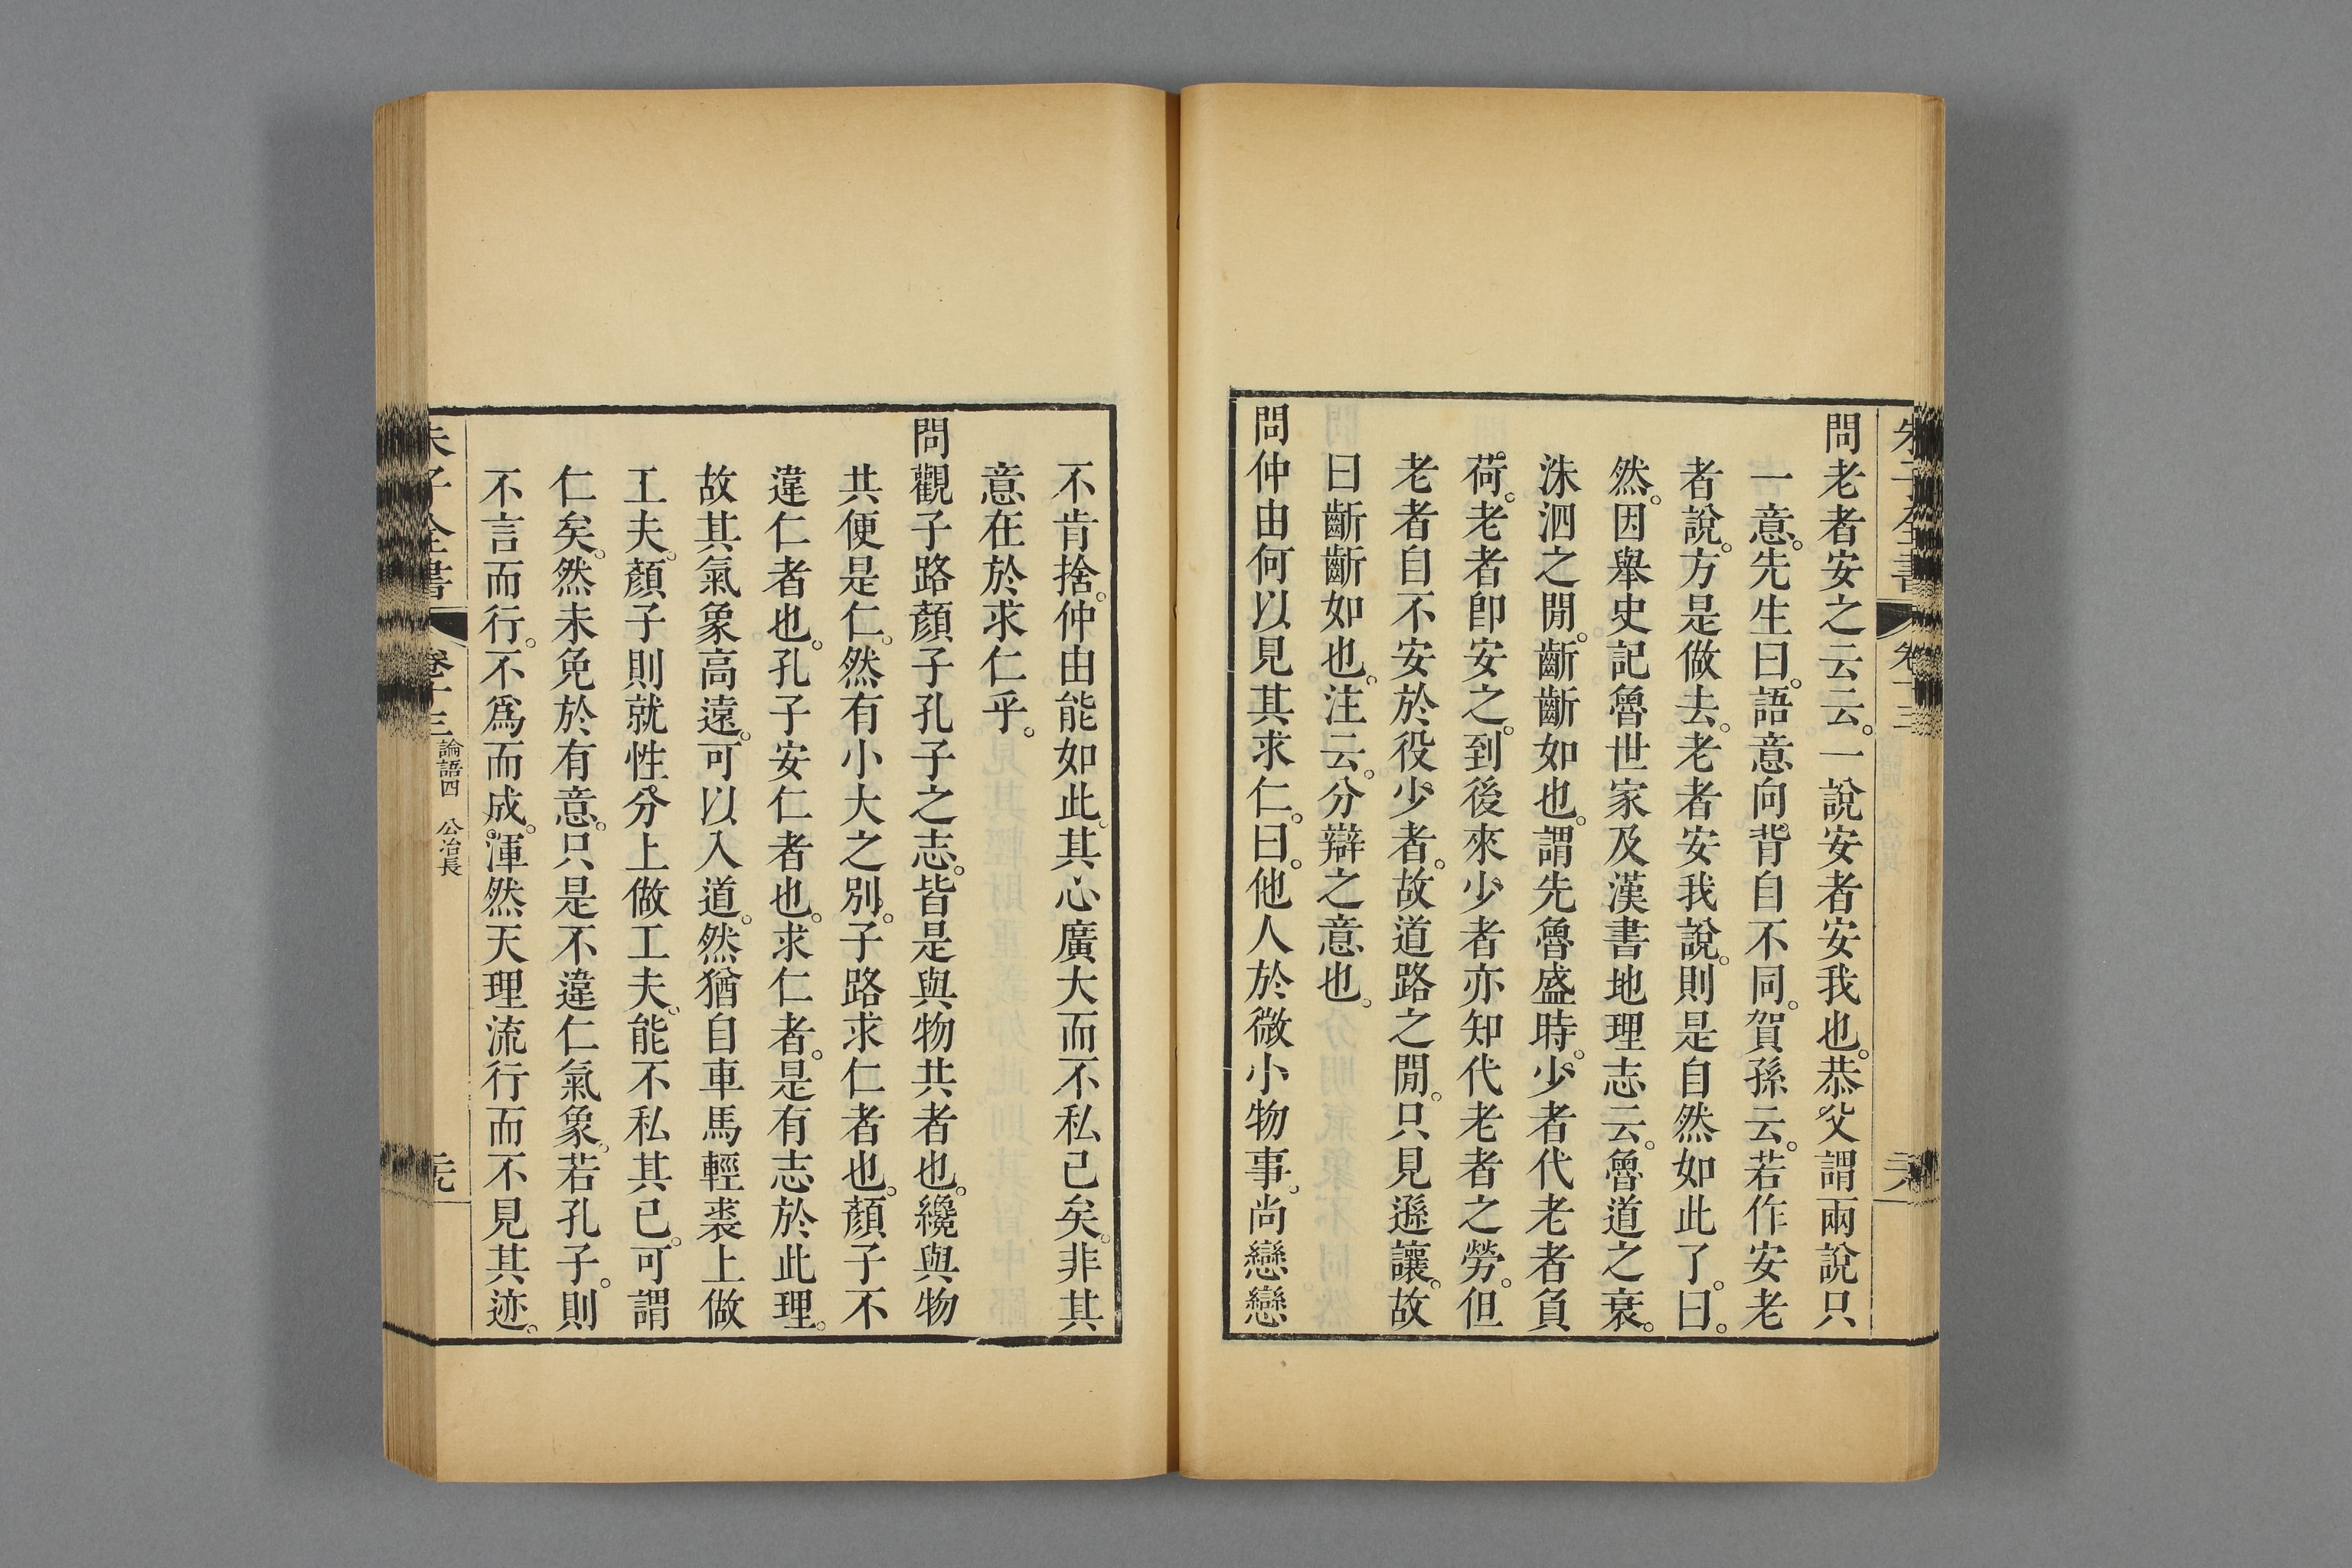 朱子全書 卷十三
問老者安之云云。一說安者安我也。恭父謂兩說只
一意。先生曰。語意向背自不同。賀孫云。若作安老
者說。方是做去。老者安我說。則是自然如此了。曰。
然。因舉史記魯世家及漢書地理志云。魯道之衰。
洙泗之閒。齗齗如也。謂先魯盛時。少者代老者負
荷。老者卽安之。到後來少者亦知代老者之勞。但
老者自不安於役少者。故道路之閒。只見遜讓。故
曰齗齗如也。注云。分辯之意也。
問仲由何以見其求仁。曰。他人於微小物事。尚戀戀
不肯捨。仲由能如此。其心廣大而不私己矣。非其
意在於求仁乎。
問觀子路顏子孔子之志。皆是與物共者也。纔與物
共便是仁。然有小大之別。子路求仁者也。顏子不
違仁者也。孔子安仁者也。求仁者。是有志於此理。
故其氣象高遠。可以入道。然猶自車馬輕裘上做
工夫。顏子則就性分上做工夫。能不私其己。可謂
仁矣。然未免於有意。只是不違仁氣象。若孔子。則
不言而行。不爲而成。渾然天理流行而不見其迹。
朱子全書 卷十三 論語四 公冶長 元